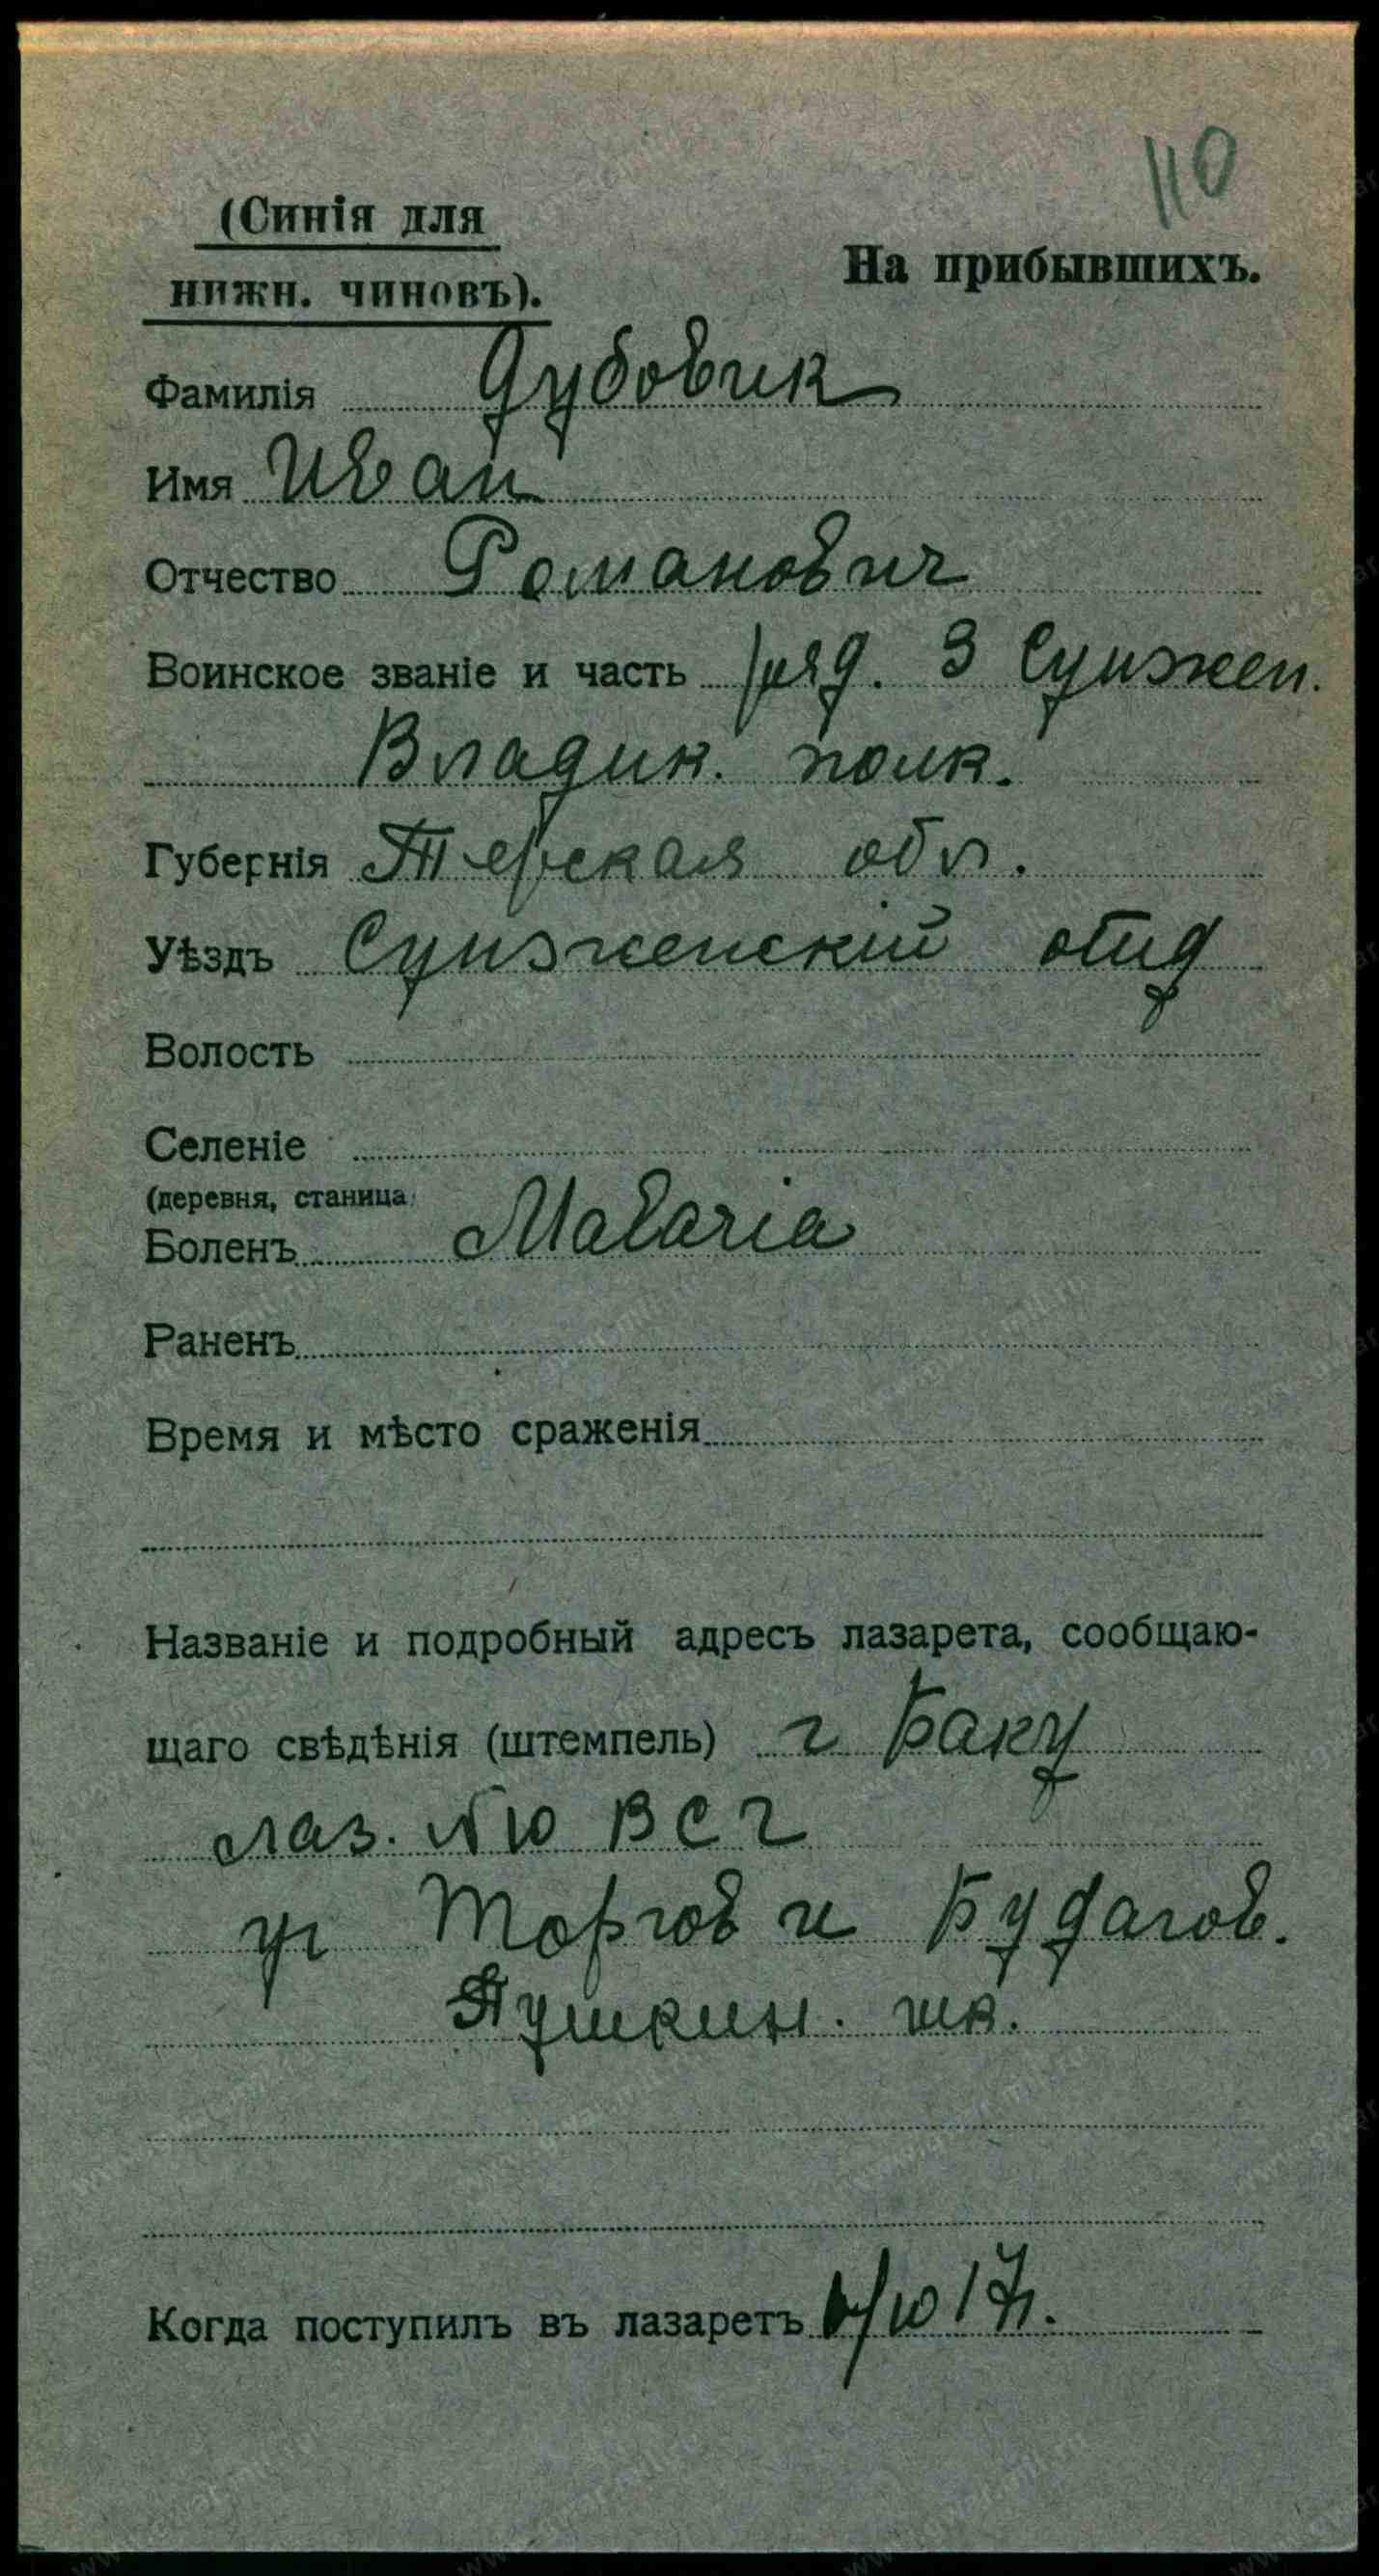 110
(Синія для
нижн. чиновъ).
На прибывшихъ.
Фамилія Дубовик
Имя Иван
Отчество Романович
Воинское званіе и часть ряд. 3 Сунжен.
Владик. полк.
Губернія Терская обл.
Уѣздъ Сунженскій отд
Волость
Селеніе
(деревня, станица
Боленъ Malaria
Раненъ
Время и мѣсто сраженія
Названіе и подробный адресъ лазарета, сообщаю-
щаго свѣдѣнія (штемпель) г Баку
лаз. №10 ВСГ
уг Торгов и Будагов.
Пушкин. шк.
Когда поступилъ въ лазаретъ /10 17г.